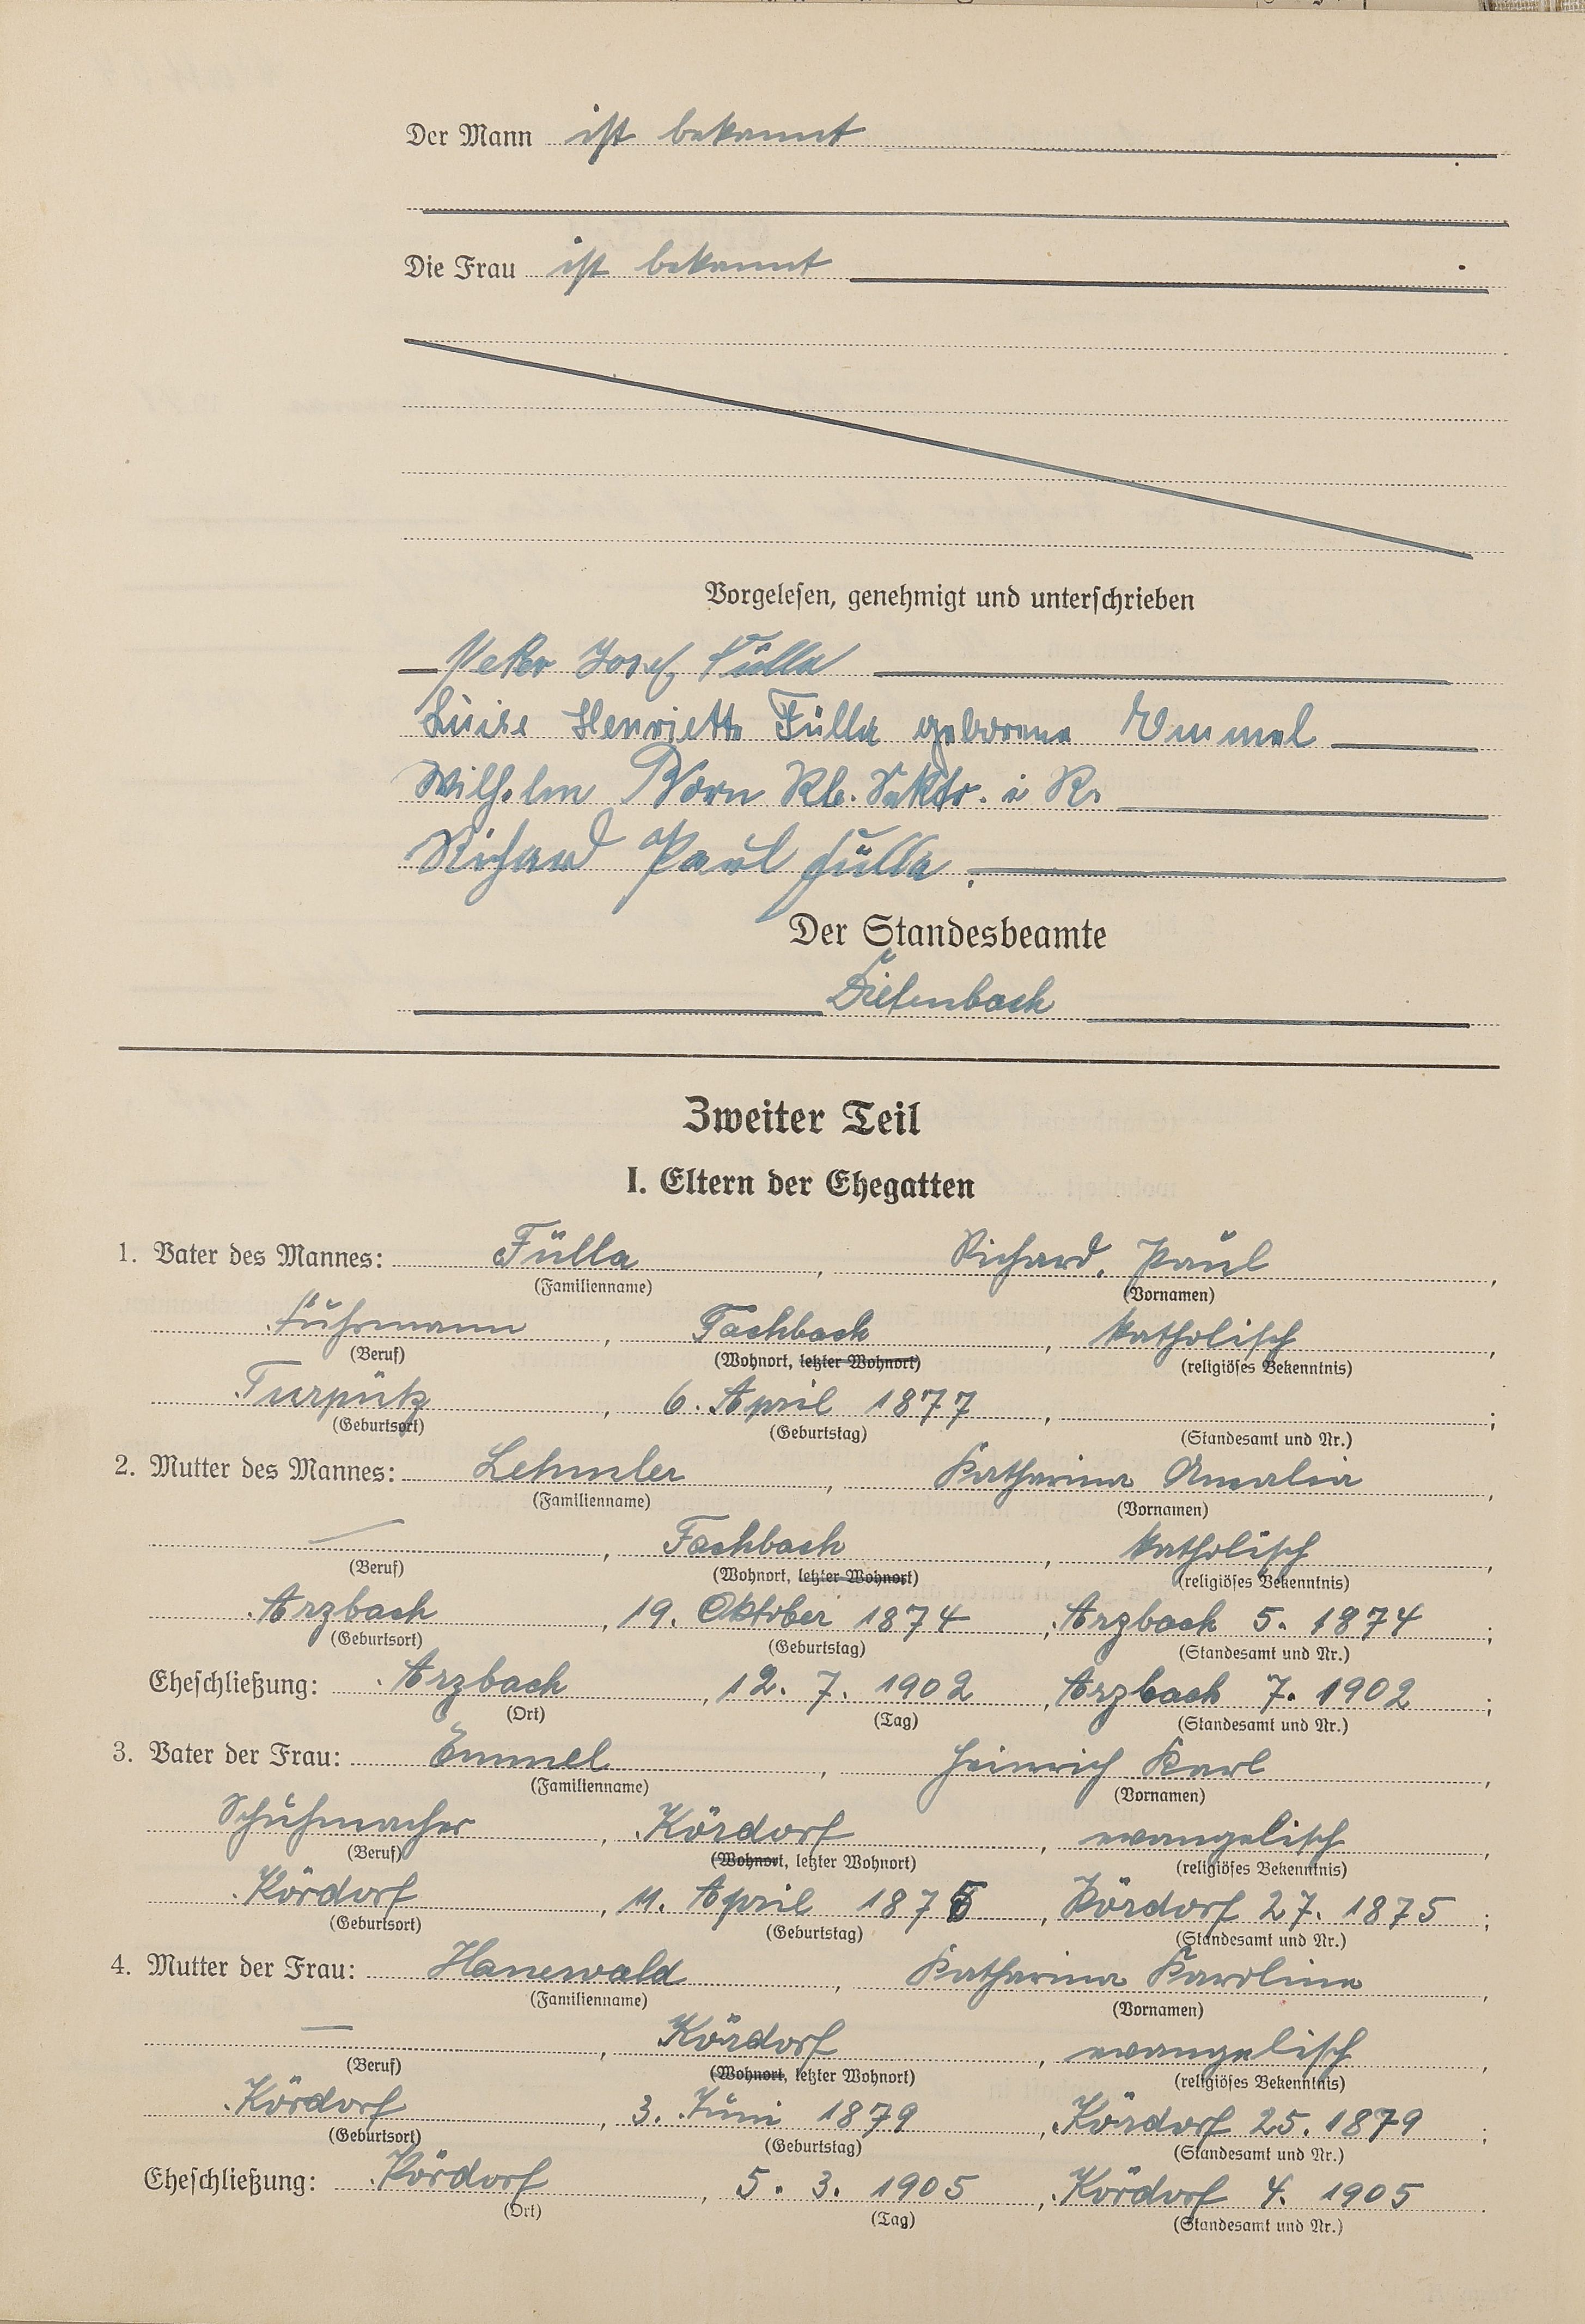 Der Mann ist bekannt
Die Frau ist bekannt
Vorgelesen, genehmigt und unterschrieben
Peter Josef Fülla
Luise Henriette Fülla geborene Emmel
Wilhelm Born Rb. Sektr. i R.
Richard Paul Fülla.
Der Standesbeamte
Diefenbach
Zweiter Teil
I. Eltern der Ehegatten
1. Vater des Mannes: Fülla, Richard, Paul,
(Familienname) (Vornamen)
Fuhrmann, Fachbach, katholisch,
(Beruf) (Wohnort, letzter Wohnort) (religiöses Bekenntnis)
6. April 1877, ;
(Geburtsort) (Geburtstag) (Standesamt und Nr.)
2. Mutter des Mannes: Lehmler, Katharina Amalia,
(Familienname) (Vornamen)
—, Fachbach, katholisch,
(Beruf) (Wohnort, letzter Wohnort) (religiöses Bekenntnis)
Arzbach, 19. Oktober 1874, Arzbach 5. 1874;
(Geburtsort) (Geburtstag) (Standesamt und Nr.)
Eheschließung: Arzbach, 12. 7. 1902, Arzbach 7. 1902;
(Ort) (Tag) (Standesamt und Nr.)
3. Vater der Frau: Emmel, Heinrich Karl,
(Familienname) (Vornamen)
Schuhmacher, Kördorf, evangelisch,
(Beruf) (Wohnort, letzter Wohnort) (religiöses Bekenntnis)
Kördorf, 11. April 1875, Kördorf 27. 1875;
(Geburtsort) (Geburtstag) (Standesamt und Nr.)
4. Mutter der Frau: Hanewald, Katharina Karoline,
(Familienname) (Vornamen)
—, Kördorf, evangelisch,
(Beruf) (Wohnort, letzter Wohnort) (religiöses Bekenntnis)
Kördorf, 3. Juni 1879, Kördorf 25. 1879;
(Geburtsort) (Geburtstag) (Standesamt und Nr.)
Eheschließung: Kördorf, 5. 3. 1905, Kördorf 4. 1905.
(Ort) (Tag) (Standesamt und Nr.)